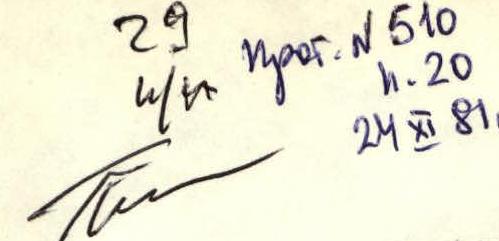 29
н/к
Прот. N 510
п. 20
24 XI 81.